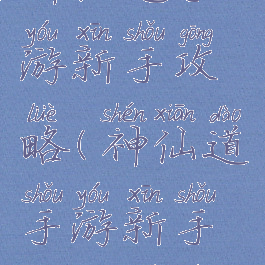 yóu xīn shǒu gōng
游新手攻
lüè shén xiān dào
略(神仙道
shǒu yóu xīn shǒu
手游新手